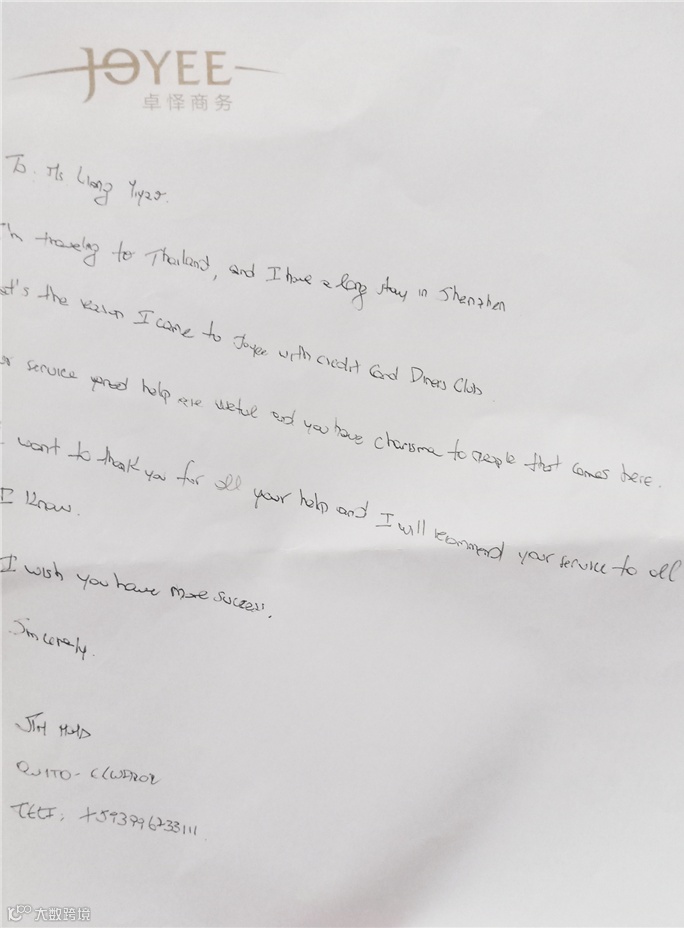 JOYEE
卓怿商务
To: Ms Liang Yiyao.
I'm traveling to Thailand, and I have a long stay in Shenzhen
at's the reason I came to Joyee with credit Card Diners Club
ur service and help are useful and you have charisma to people that comes here.
I want to thank you for all your help and I will recommend your service to all
I know.
I wish you have more success.
Sincerely.
JIM
QUITO - ECUADOR
+593996233111
大数跨境